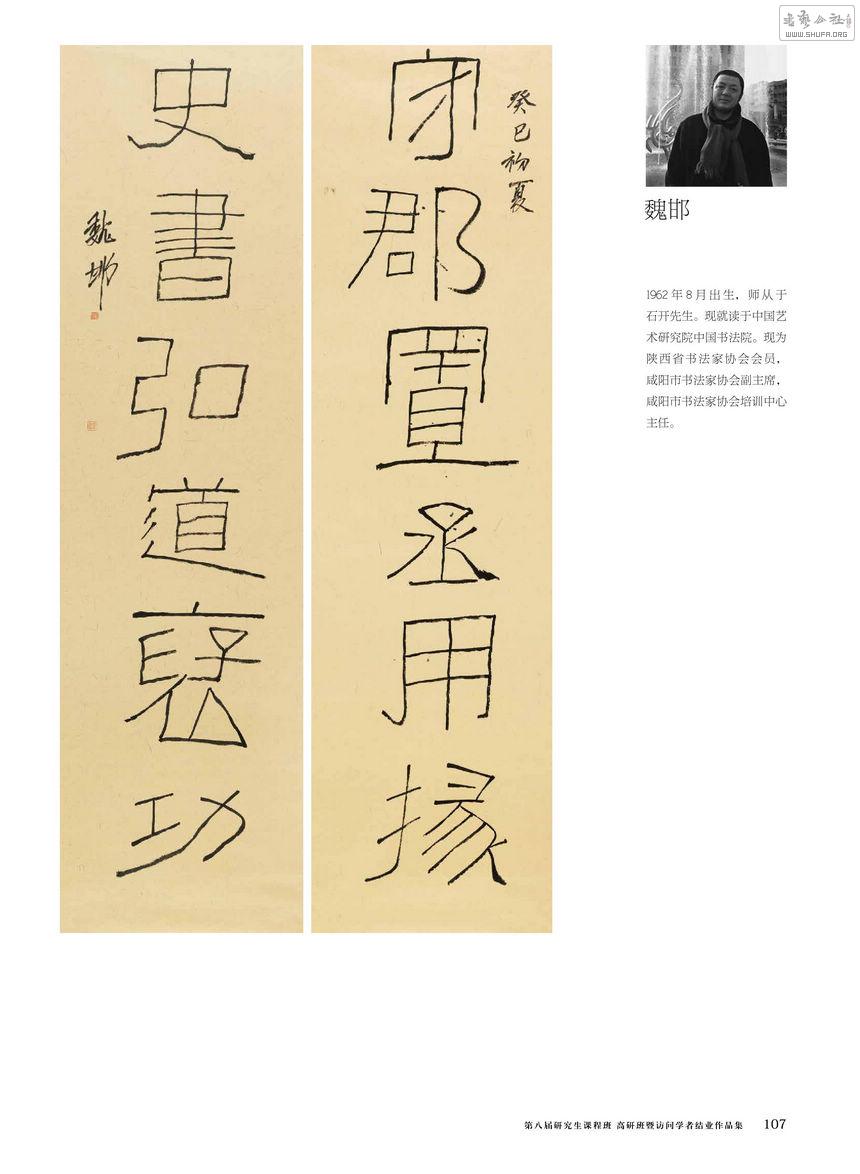 書藝公社
WWW.SHUFA.ORG
癸巳初夏
守郡置丞用掾
史書弘道褒功
魏邯
魏邯
1962 年 8 月出生，师从于
石开先生。现就读于中国艺
术研究院中国书法院。现为
陕西省书法家协会会员，
咸阳市书法家协会副主席，
咸阳市书法家协会培训中心
主任。
第八届研究生课程班 高研班暨访问学者结业作品集 107